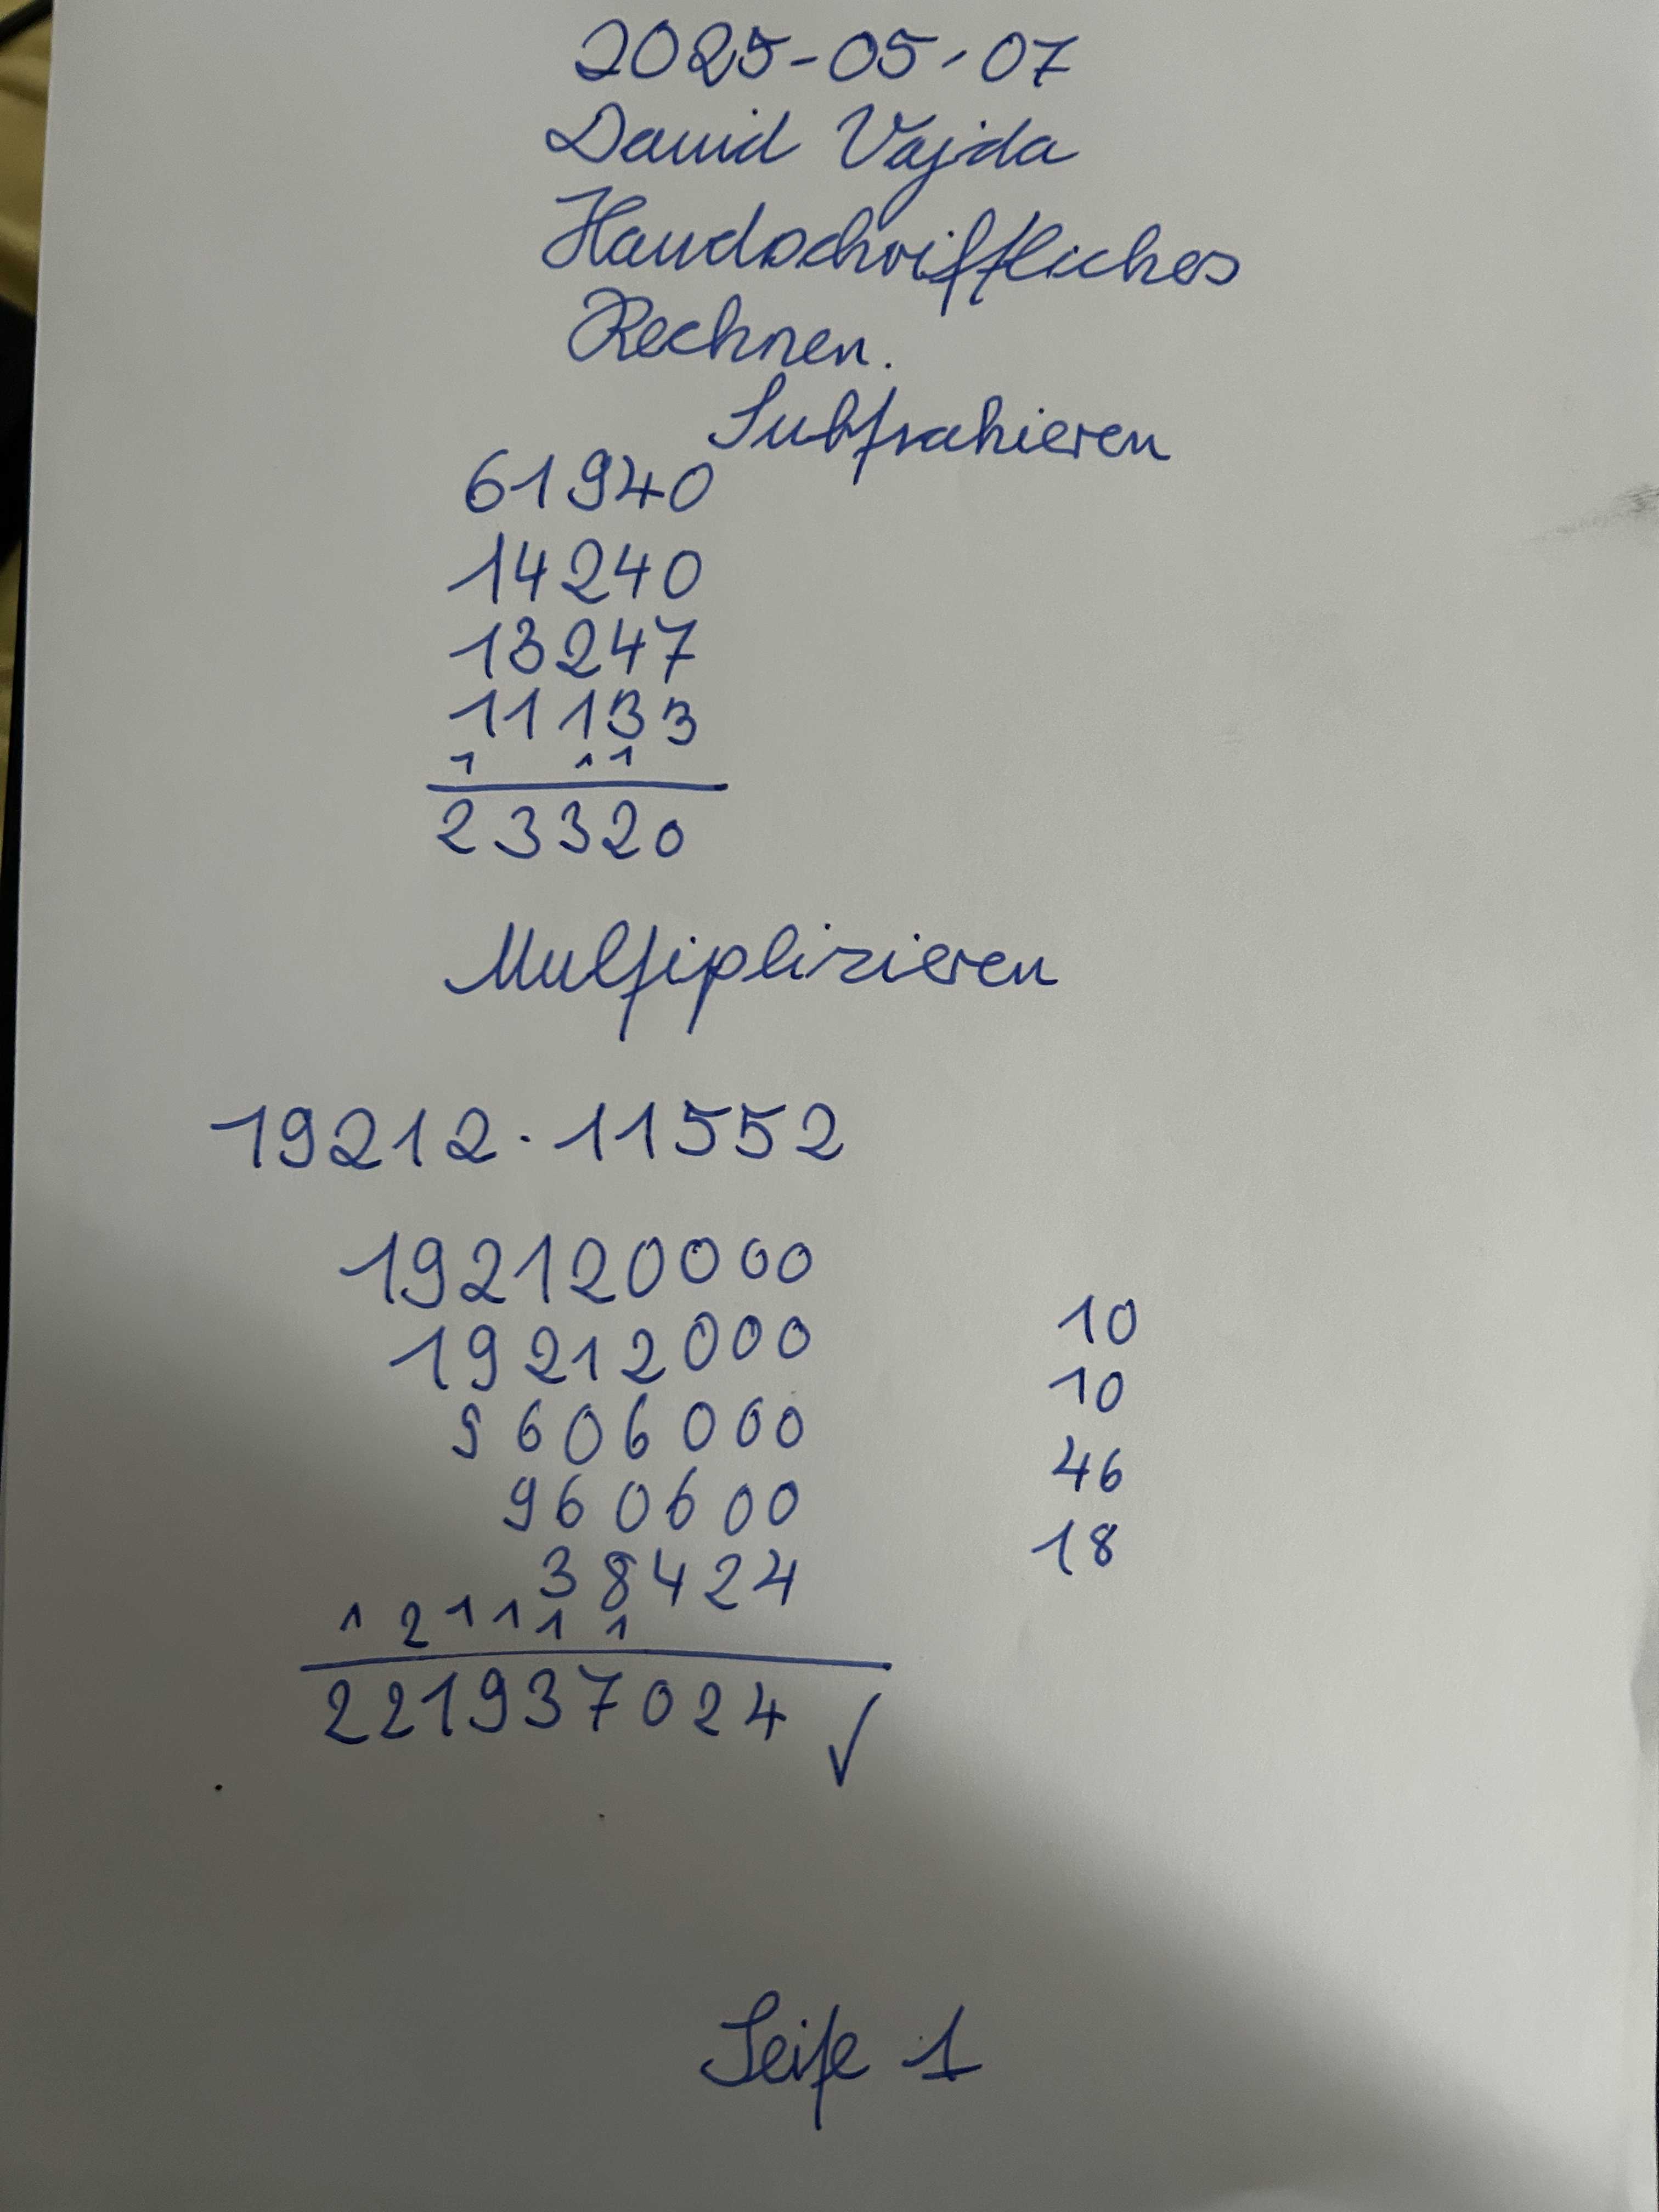 2025-05-07
David Vajda
Handschriftliches
Rechnen.
Subtrahieren
61940
14240
13247
11133
1 1 1
23320
Multiplizieren
19212 · 11552
192120000
19212000 10
9606000 10
960600 46
38424 18
1 2 1 1 1 1
221937024 ✓
Seite 1